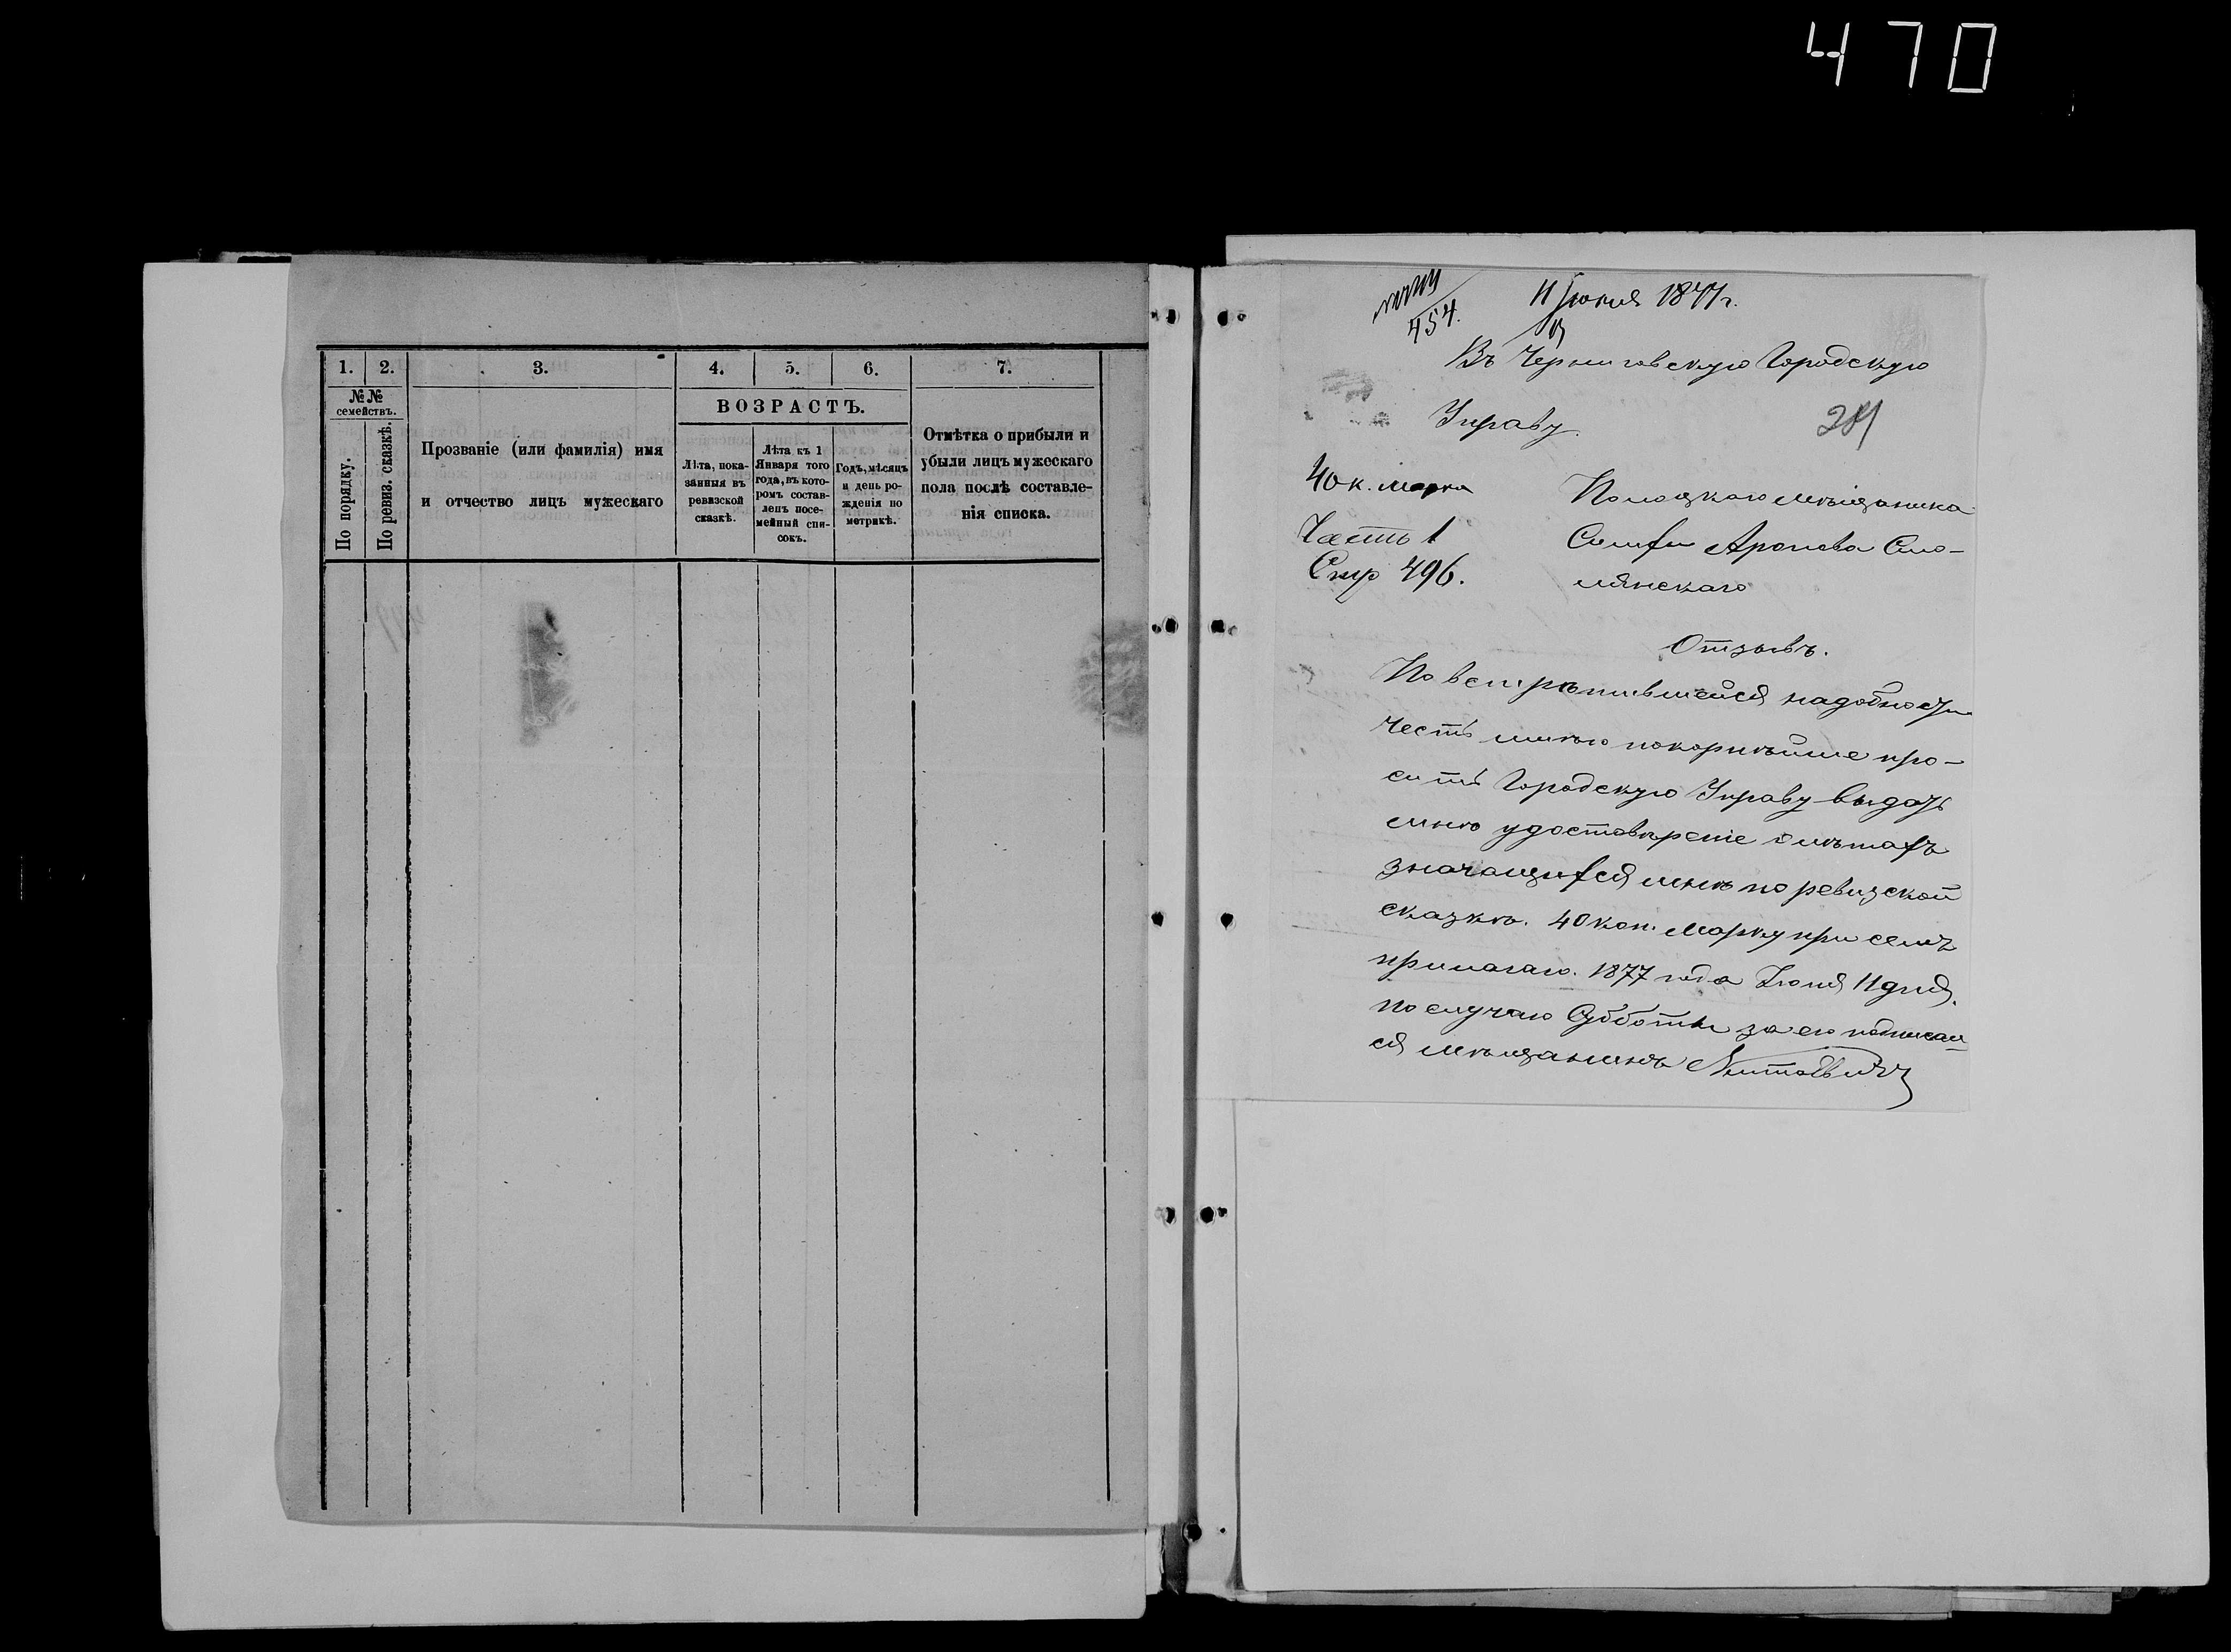 470
1. 2. 3. 4. 5. 6. 7.
№№ семействъ.
По порядку.
По ревиз. сказкѣ.
Прозваніе (или фамилія) имя
и отчество лицъ мужескаго
ВОЗРАСТЪ.
Лѣта, пока-
занныя въ
ревизской
сказкѣ.
Лѣта къ 1
Января того
года, въ кото-
ромъ состав-
ленъ посе-
мейный спи-
сокъ.
Годъ, мѣсяцъ
и день ро-
жденія по
метрикѣ.
Отмѣтка о прибыли и
убыли лицъ мужескаго
пола послѣ составле-
нія списка.
454.
11 Іюня 1877 г.
Въ Черниговскую Городскую
Управу.
281
40 к. марка
Часть 1
Стр 496.
мѣщанина
Аронова Смо-
лянскаго
Отзывъ.
По встрѣтившейся надобности
честь имѣю покорнѣйше про-
сить Городскую Управу выдать
мнѣ удостовѣреніе о лѣтахъ
значащихся мнѣ по ревизской
сказкѣ. 40 коп. Марку при семъ
прилагаю. 1877 года Іюня 11 дня.
По случаю Субботы за его подписал-
ся мѣщанинъ